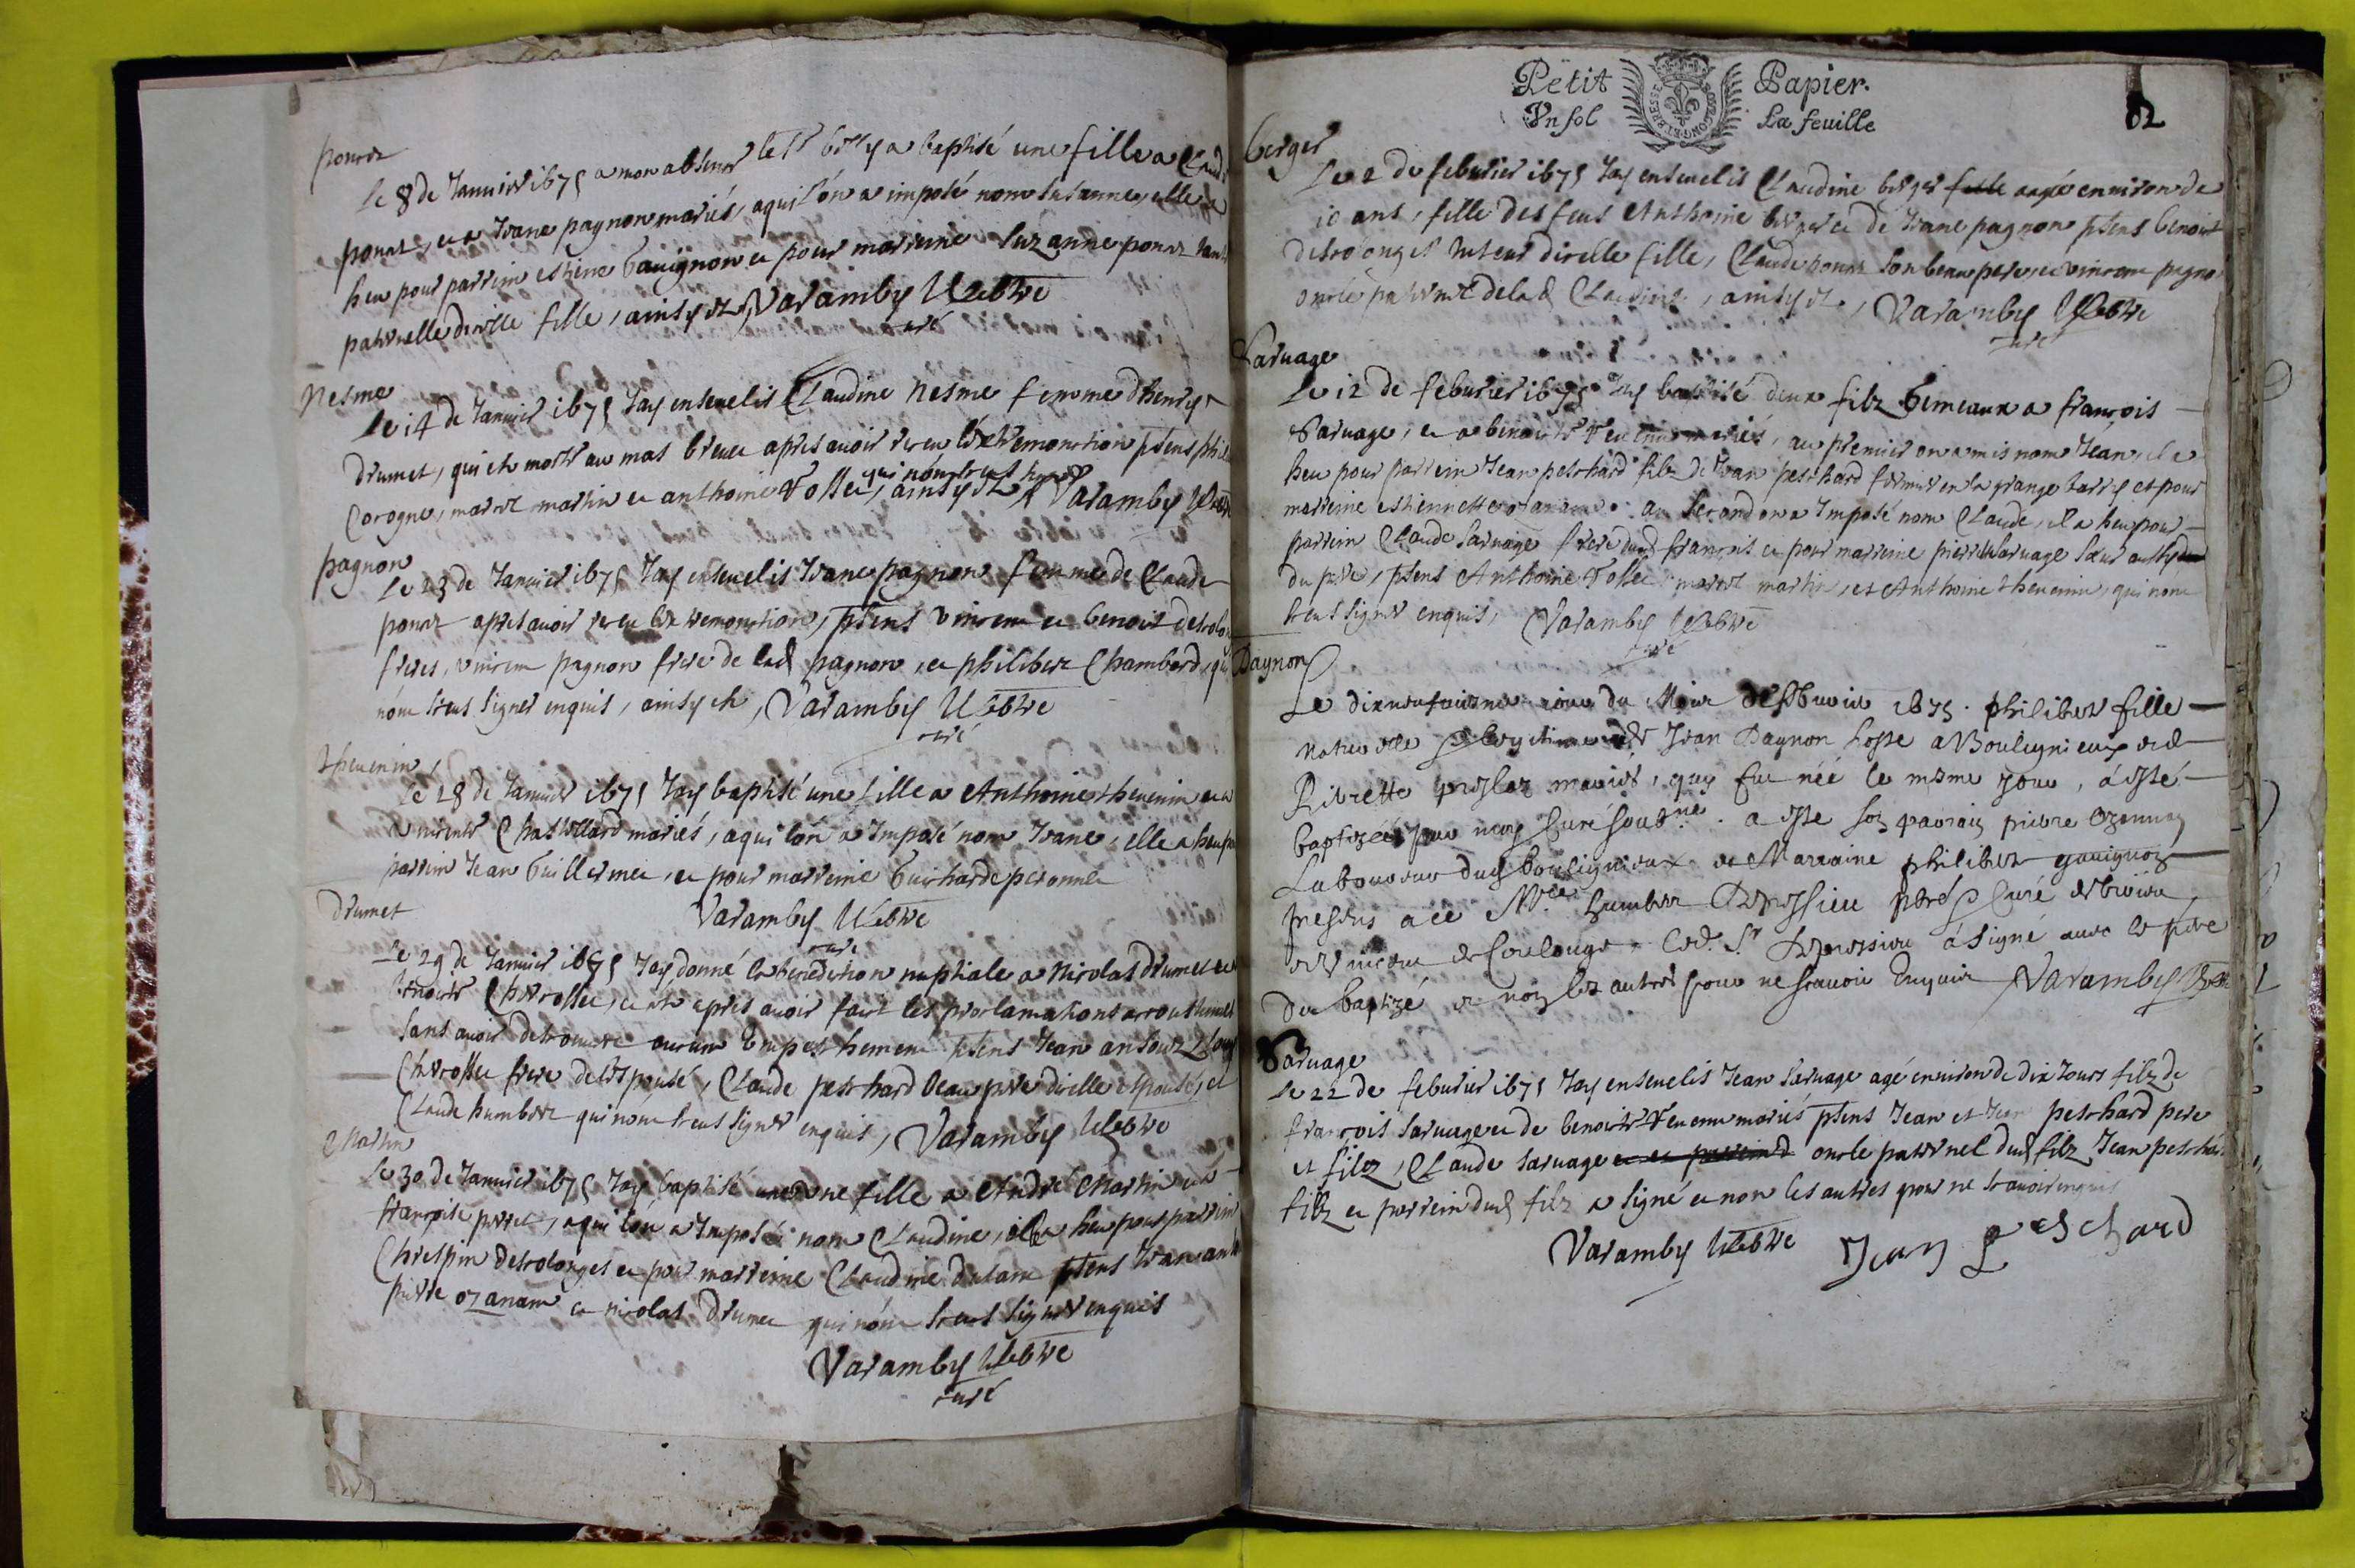 ponra
le 8 de Januier 1675 a mon absence le Sr y a baptisé une fille a Claude
ponrat, et a Jeane pagnon mariés, a qui lón a imposé nom Susanne, elle a
heu pour parrein estiene Gauignon et pour marreine Suzanne ponrat tante
paternelle dicelle fille, ainsy est, Varamby Plebtre
curé
Nesme
le 14 de Januier 1675 Jay enseuelis Claudine Nesme femme dhenry
Drumet, qui est morte au mas apres auoir receu lextremonction pñens
qui nónt sceus signer
Corogne, marcet martin et anthoine Tosse, ainsy est Varamby
pagnon
Le 23 de Januier 1675 Jay enseuelis Jeane pagnon femme de Claude
ponrat apres auoir receu lextremonction, pñens vincent et benoist descolon
freres, vincent pagnon frere de lad pagnon, et philibert Chambard, qui
nónt sceus signer enquis, ainsy est, Varamby Plebtre
curé
Theuenin
Le 28 de Januier 1675 Jay baptisé une fille a Anthoine theuenin et a
Chastellard mariés, a qui lón a Imposé nom Jeane, elle a heu pour
parrein Jean Guillermet, et pour marreine Guicharde peronnet
Drumet
Varamby Plebtre
curé
Le 29 de Januier 1675 Jay donné la benediction nuptiale a Nicolas Drumet et a
benoiste Cherosset, et ce apres auoir faict les proclamations accoustumees
sans auoir descouuert aucun Empeschement pñens Jean
Cherosset frere de lespousé, Claude peschard beau pere dicelle espousé, et
Claude humbert qui nónt sceus signer enquis, Varamby Plebtre
Martin
Le 30 de Januier 1675 Jay baptisé une fille a André Martin et a
françoise perret, a qui lón a Imposé nom Claudine, elle a heu pour parrein
Chrespin descolonges et pour marreine Claudine dulac pñens Jean
pierre ozanam et nicolas Drumet qui nónt sceus signer enquis
Varamby Plebtre
curé
Petit Papier.
Vn sol La feuille
BRESSE BOVRGONG ET
82
berger
Le 2 de feburier 1675 Jay enseuelis Claudine berger agée enuiron de
10 ans, fille des feus Anthoine berger et de Jeane pagnon pñens benoist
descolonges tuteur dicelle fille, Claude ponrat son beau pere, et vincent pagnon
oncle paternel de lad Claudine, ainsy est, Varamby Plebtre
curé
Saruage
Le 12 de feburier 1675 Jay baptisé deux filz Gemeaux a françois
Saruage, et a benoiste mariés, au premier on a mis nom Jean, il a
heu pour parrein Jean peschard filz de Jean peschard fermier en la grange barry et pour
marreine estiennette ozanam. au second on a Imposé nom Claude, il a heu pour
parrein Claude Saruage frere dud françois et pour marreine pierrette Saruage sœur aussy
du pere, pñens Anthoine Tosse marcet martin, et Anthoine theuenin, qui nónt
sceus signer enquis, Varamby Plebtre
curé
Pagnon
Le dixneufuiesme jour du Mois de feburier 1675. philiberte fille
naturelle et legitime de Jean Pagnon hoste a Bouligneux et de
Pierrette mariés, quy fut née le mesme jour, á esté
baptizée par moy Curé soubne. a esté son parrain pierre Ozannan
Laboureur dud bouligneux et Marraine philiberte gauignon
presens a ce Mre humbert pbre Curé de
et vincent de Coulonge. led. Sr á signé auec le pere
du baptizé et non les autres pour ne scauoir Enquis Varamby
Saruage
Le 22 de feburier 1675 Jay enseuelis Jean Saruage agé enuiron de dix Jours filz de
françois Saruage et de benoiste mariés pñens Jean et Jean peschard pere
et filz, Claude Saruage oncle paternel dud filz Jean peschard
filz et parrein dud filz a signé et non les autres pour ne scauoir enquis
Varamby Plebtre Jean Peschard